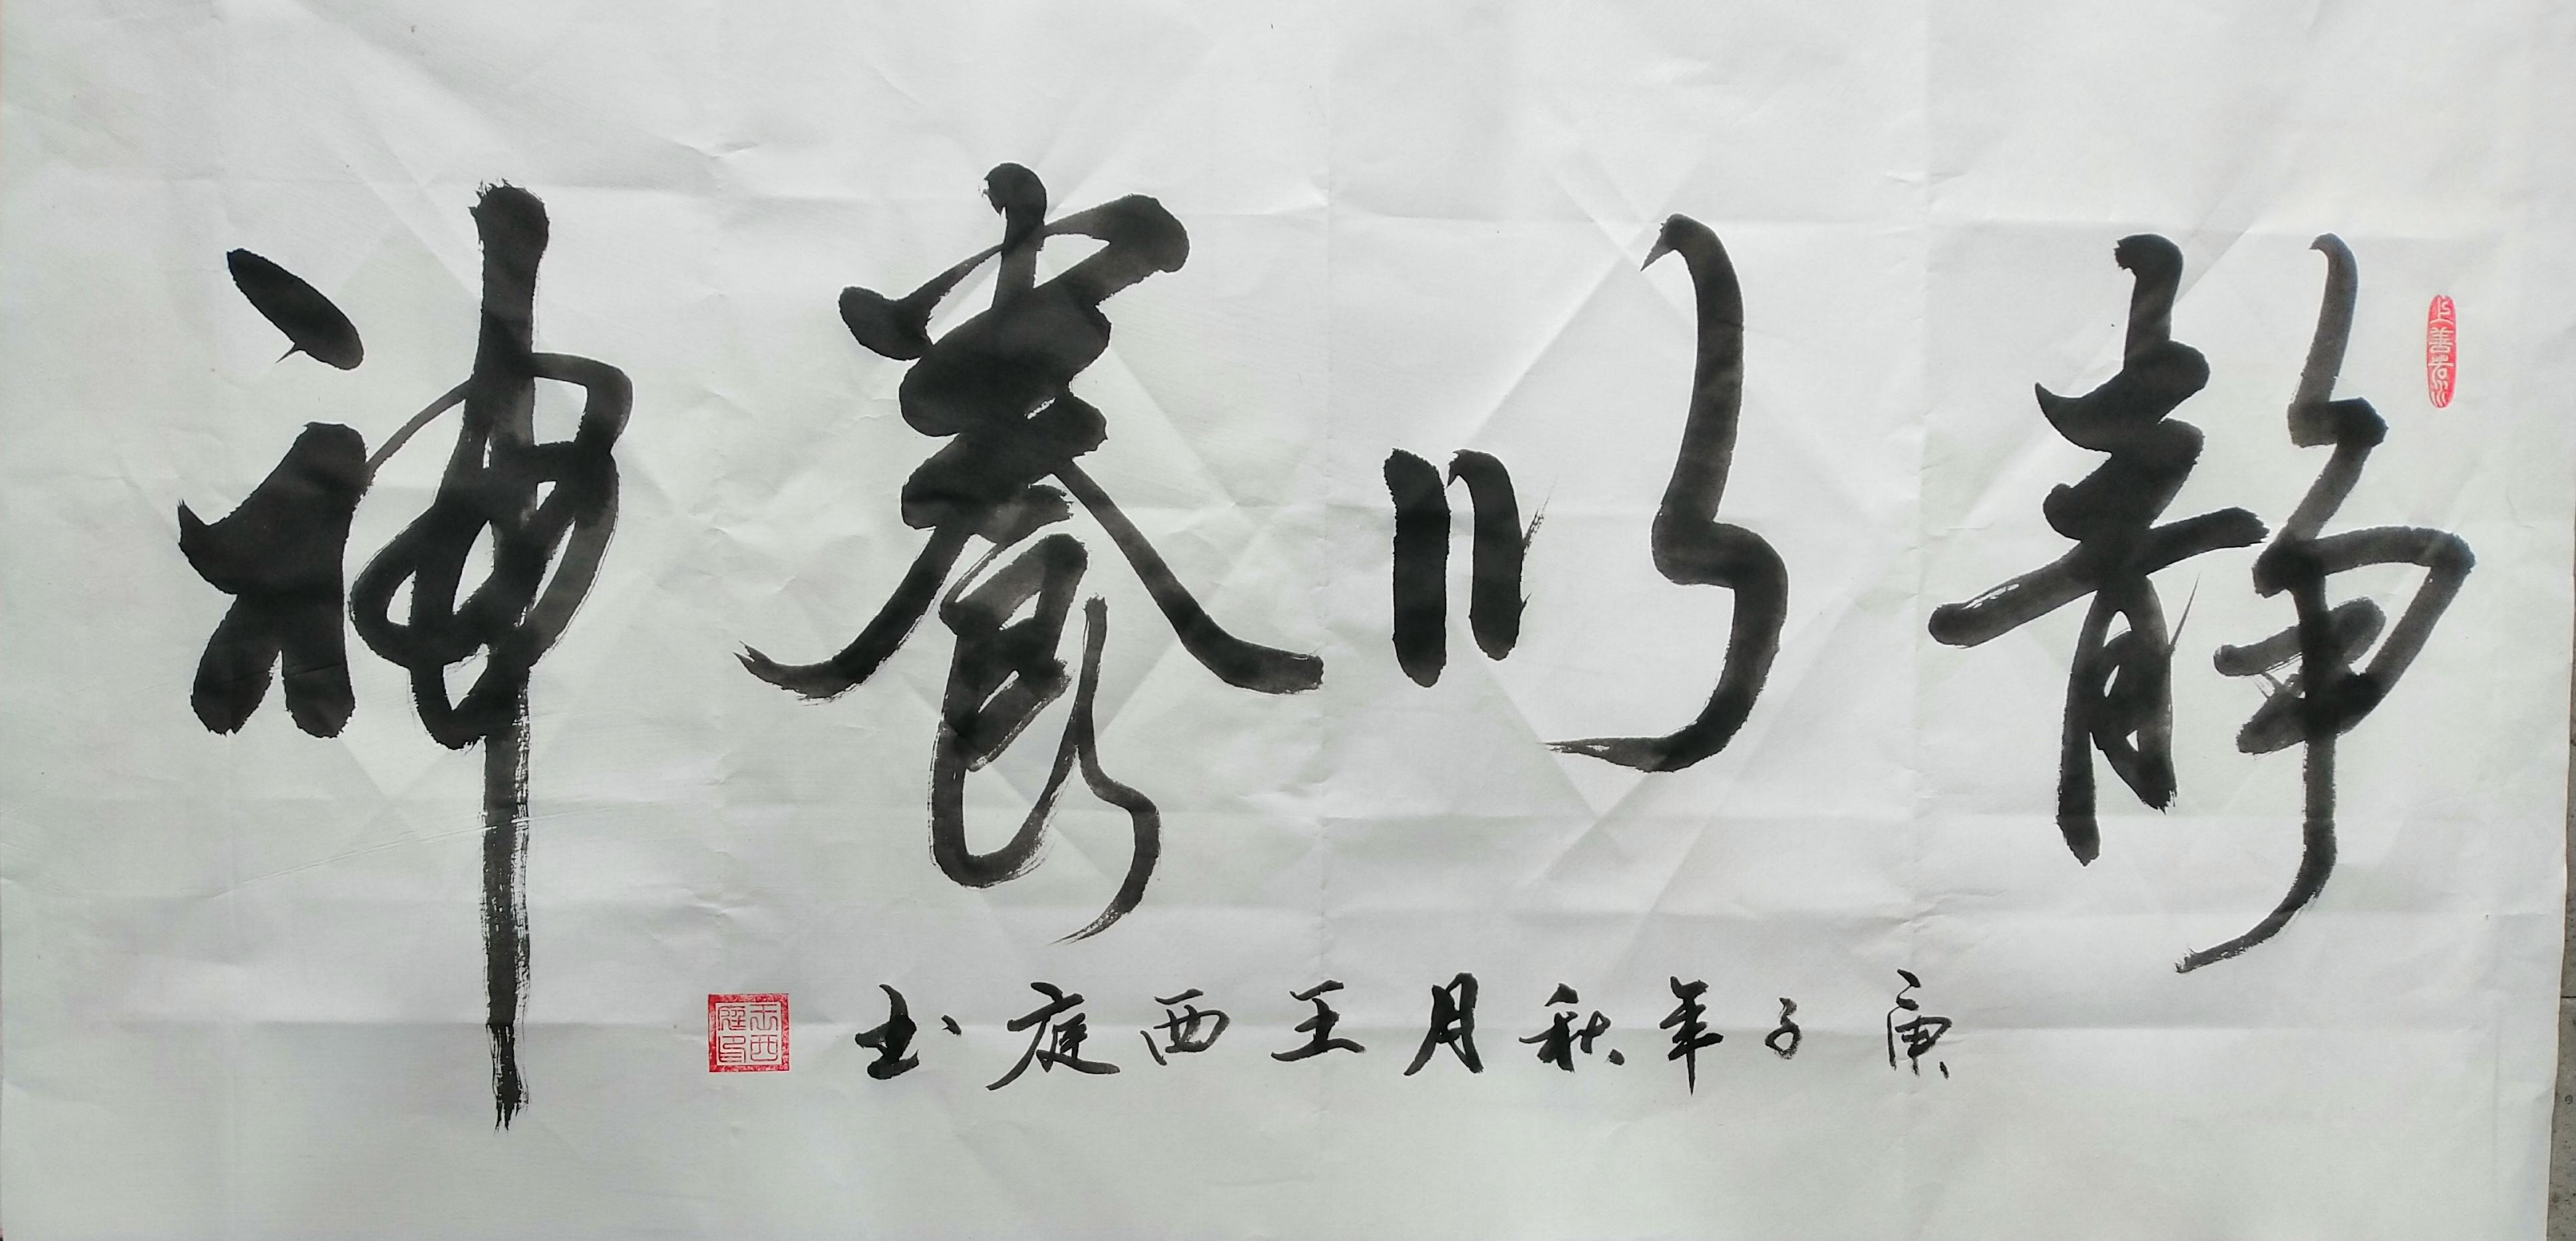 静以養神
庚子年秋月王西庭书
上善若水
王西庭印